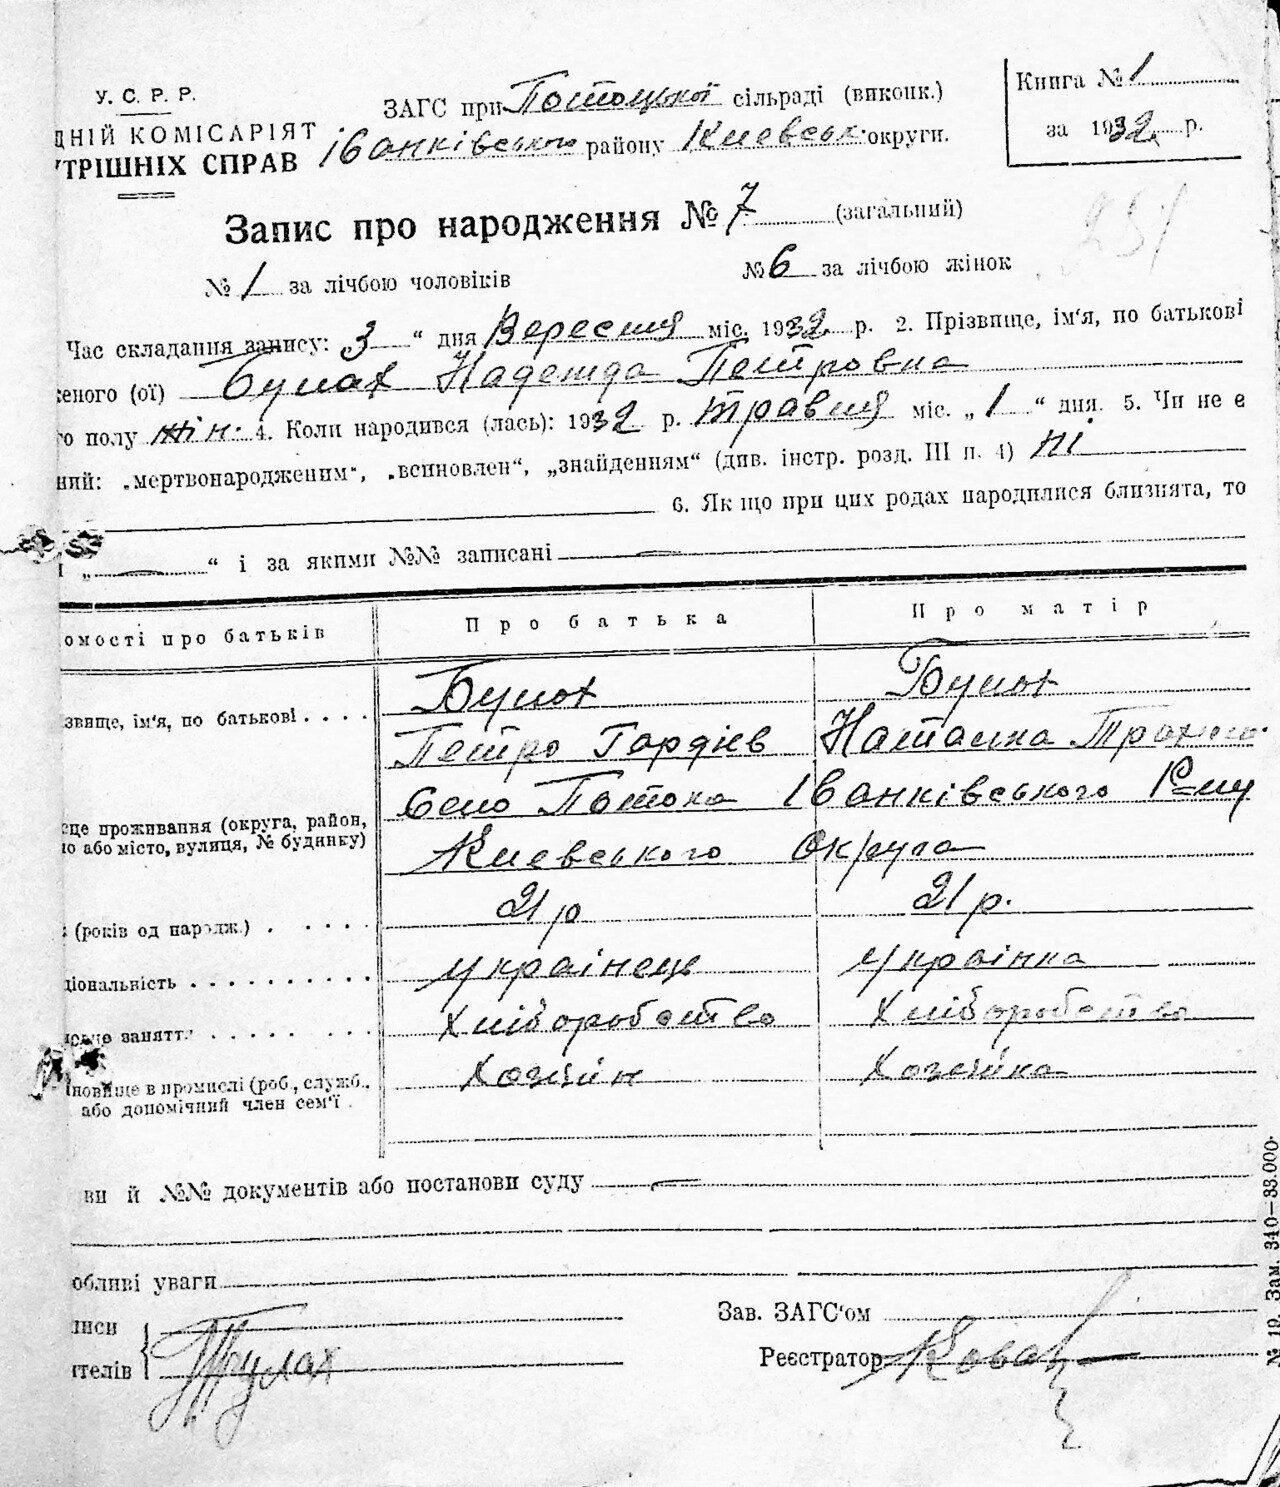 У. С. Р. Р.
ДНІЙ КОМІСАРІЯТ
УТРІШНІХ СПРАВ
ЗАГС при Потоцької сільраді (виконк.)
Іванківського району Киевськ. округи.
Книга № 1
за 1932 р.
Запис про народження № 7 (загальний)
№ 1 за лічбою чоловіків № 6 за лічбою жінок
251
Час складання запису: 3 “ дня Вересня міс. 1932 р. 2. Прізвище, ім'я, по батькові
женого (ої) Булах Надежда Петровна
го полу жін. 4. Коли народився (лась): 1932 р. травня міс. „ 1 “ дня. 5. Чи не є
ний: „мертвонародженим“, „всиновлен“, „знайденням“ (див. інстр. розд. III п. 4) ні
6. Як що при цих родах народилися близнята, то
і „ — “ і за якими №№ записані —
омості про батьків Про батька Про матір
звище, ім'я, по батькові . . . . Булах Булах
Петро Гордіев Наталка
сце проживання (округа, район, Село Потока Іванківського Р=ну
ло або місто, вулиця, № будинку) Киевського Округа
(років од народж.) . . . . . 21 р 21 р.
ціональність . . . . . . . . . . українець українка
заняття . . . . . Хліборобство Хліборобство
ановище в промислі (роб., служб., Хозяїн Хозяйка
або допомічний член сем'ї .
ви й №№ документів або постанови суду —
обливі уваги
писи Зав. ЗАГС'ом
ителів Булах Реєстратор
№ 19. Зам. 340—33.000.